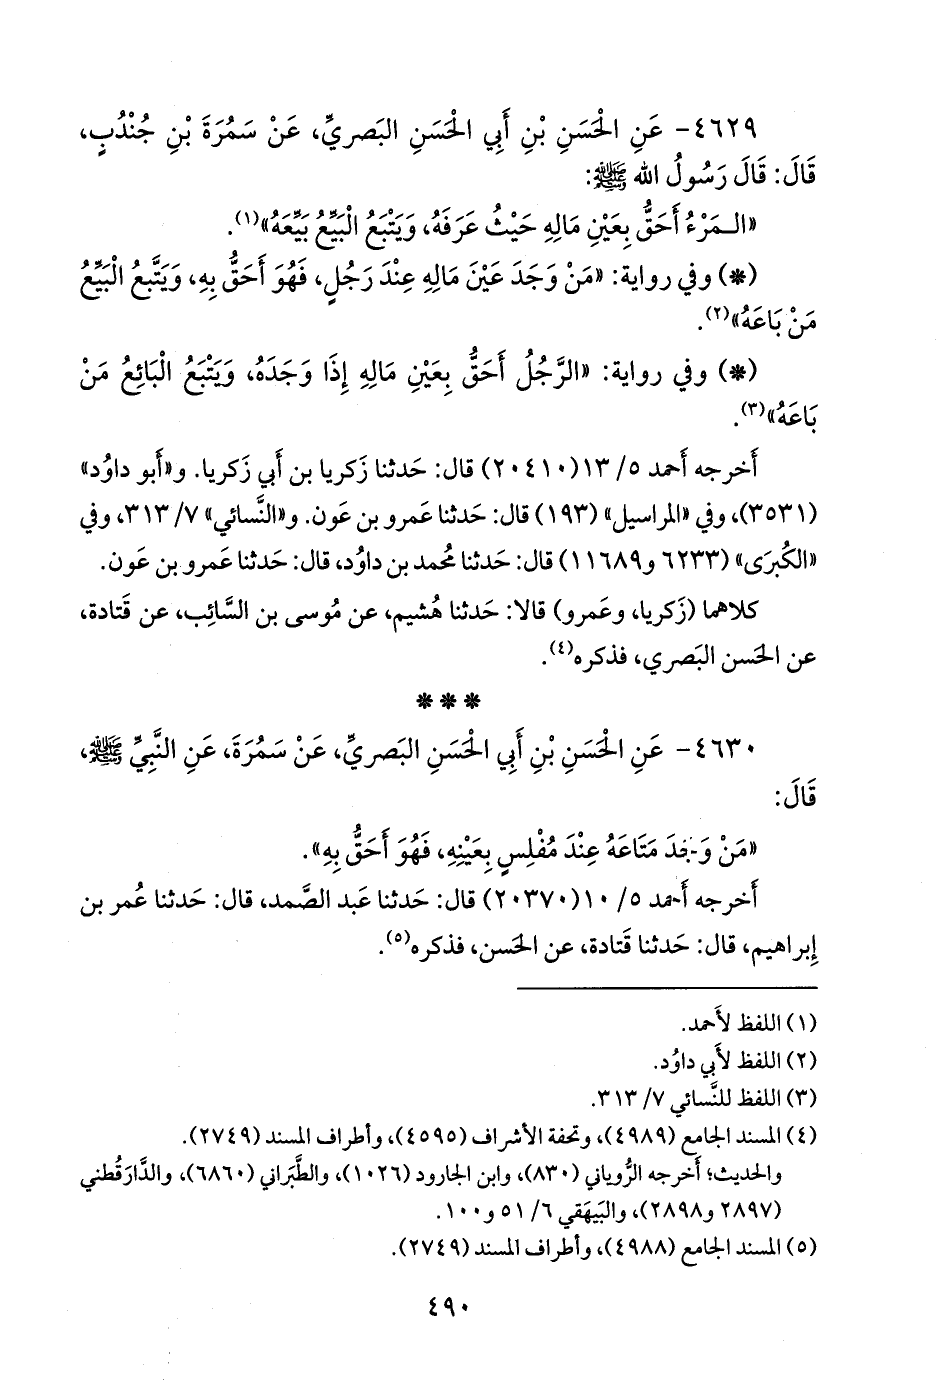 ٤٦٢٩- عَنِ الْحَسَنِ بْنِ أَبِي الْحَسَنِ البَصرِيِّ، عَنْ سَمُرَةَ بْنِ جُنْدُبٍ،
قَالَ: قَالَ رَسُولُ الله ﷺ:
«الـمَرْءُ أَحَقُّ بِعَيْنِ مَالِهِ حَيْثُ عَرَفَهُ، وَيَتْبَعُ الْبَيِّعُ بَيِّعَهُ»(١).
(*) وفي رواية: «مَنْ وَجَدَ عَيْنَ مَالِهِ عِنْدَ رَجُلٍ، فَهُوَ أَحَقُّ بِهِ، وَيَتَّبِعُ الْبَيِّعُ
مَنْ بَاعَهُ»(٢).
(*) وفي رواية: «الرَّجُلُ أَحَقُّ بِعَيْنِ مَالِهِ إِذَا وَجَدَهُ، وَيَتْبَعُ الْبَائِعُ مَنْ
بَاعَهُ»(٣).
أَخرجه أَحمد ٥/ ١٣(٢٠٤١٠) قال: حَدثنا زَكريا بن أَبي زَكريا. و«أَبو داوُد»
(٣٥٣١)، وفي «المراسيل» (١٩٣) قال: حَدثنا عَمرو بن عَون. و«النَّسائي» ٧/ ٣١٣، وفي
«الكُبرَى» (٦٢٣٣ و١١٦٨٩) قال: حَدثنا مُحمد بن داوُد، قال: حَدثنا عَمرو بن عَون.
كلاهما (زَكريا، وعَمرو) قالا: حَدثنا هُشيم، عن مُوسى بن السَّائِب، عن قَتادة،
عن الحَسن البَصري، فذكره(٤).
* * *
٤٦٣٠- عَنِ الْحَسَنِ بْنِ أَبِي الْحَسَنِ البَصرِيِّ، عَنْ سَمُرَةَ، عَنِ النَّبِيِّ ﷺ،
قَالَ:
«مَنْ وَجَدَ مَتَاعَهُ عِنْدَ مُفْلِسٍ بِعَيْنِهِ، فَهُوَ أَحَقُّ بِهِ».
أَخرجه أَحمد ٥/ ١٠(٢٠٣٧٠) قال: حَدثنا عَبد الصَّمد، قال: حَدثنا عُمر بن
إِبراهيم، قال: حَدثنا قَتادة، عن الحَسن، فذكره(٥).
(١) اللفظ لأَحمد.
(٢) اللفظ لأَبي داوُد.
(٣) اللفظ للنَّسائي ٧/ ٣١٣.
(٤) المسند الجامع (٤٩٨٩)، وتحفة الأشراف (٤٥٩٥)، وأطراف المسند (٢٧٤٩).
والحديث؛ أَخرجه الرُّوياني (٨٣٠)، وابن الجارود (١٠٢٦)، والطَّبَراني (٦٨٦٠)، والدَّارَقُطني
(٢٨٩٧ و٢٨٩٨)، والبَيهَقي ٦/ ٥١ و١٠٠.
(٥) المسند الجامع (٤٩٨٨)، وأطراف المسند (٢٧٤٩).
٤٩٠